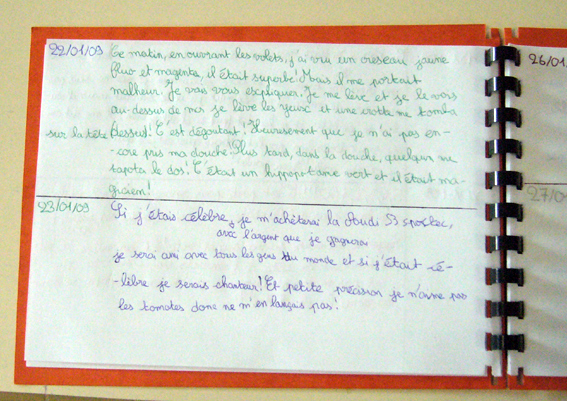 22/01/09 Ce matin, en ouvrant les volets, j'ai vu un oiseau jaune
fluo et magenta, il était superbe! Mais il me portait
malheur. Je vais vous expliquer. Je me lève et je le vois
au-dessus de moi je lève les yeux et une crotte me tomba
sur la tête dessus! C'est dégoutant! Heureusement que je n'ai pas en-
-core pris ma douche! Plus tard, dans la douche, quelqu'un me
tapota le dos. C'était un hippopotame vert et il était ma-
gicien!
23/01/09 Si j'étais célèbre, je m'achèterai la Audi S3 sportec,
avec l'argent que je gagnerai
je serai ami avec tous les gens du monde et si j'était cé-
-lèbre je serais chanteur! Et petite précision je n'aime pas
les tomates donc ne m'en lançais pas!
26/01/
27/0